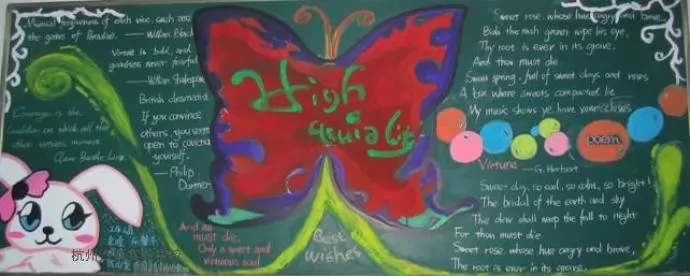 Mutual forgiveness of each vice, such are
the gates of Paradise. — William Blake
Virtue is bold, and
goodness never fearful.
— William Shakespeare
British dramatist
If you convince
others, you
open to
yourself.
— Philip
Courage is the
ladder on which all the
other virtues mount.
Clare Boothe Luce
High
Best
wishes
And all
must die.
Only a sweet and
virtuous soul
Sweet rose, whose hue angry and brave,
Bids the rash gazer wipe his eye,
Thy root is ever in its grave,
And thou must die
Sweet spring, full of sweet days and roses
A box where sweets compacted lie
My music shows ye have your closes
poem
Virture — G. Herbert
Sweet day, so cool, so calm, so bright!
The bridal of the earth and sky
The dew shall weep thy fall to night
For thou must die
Sweet rose, whose hue angry and brave,
The root is ever in its grave,
杭州